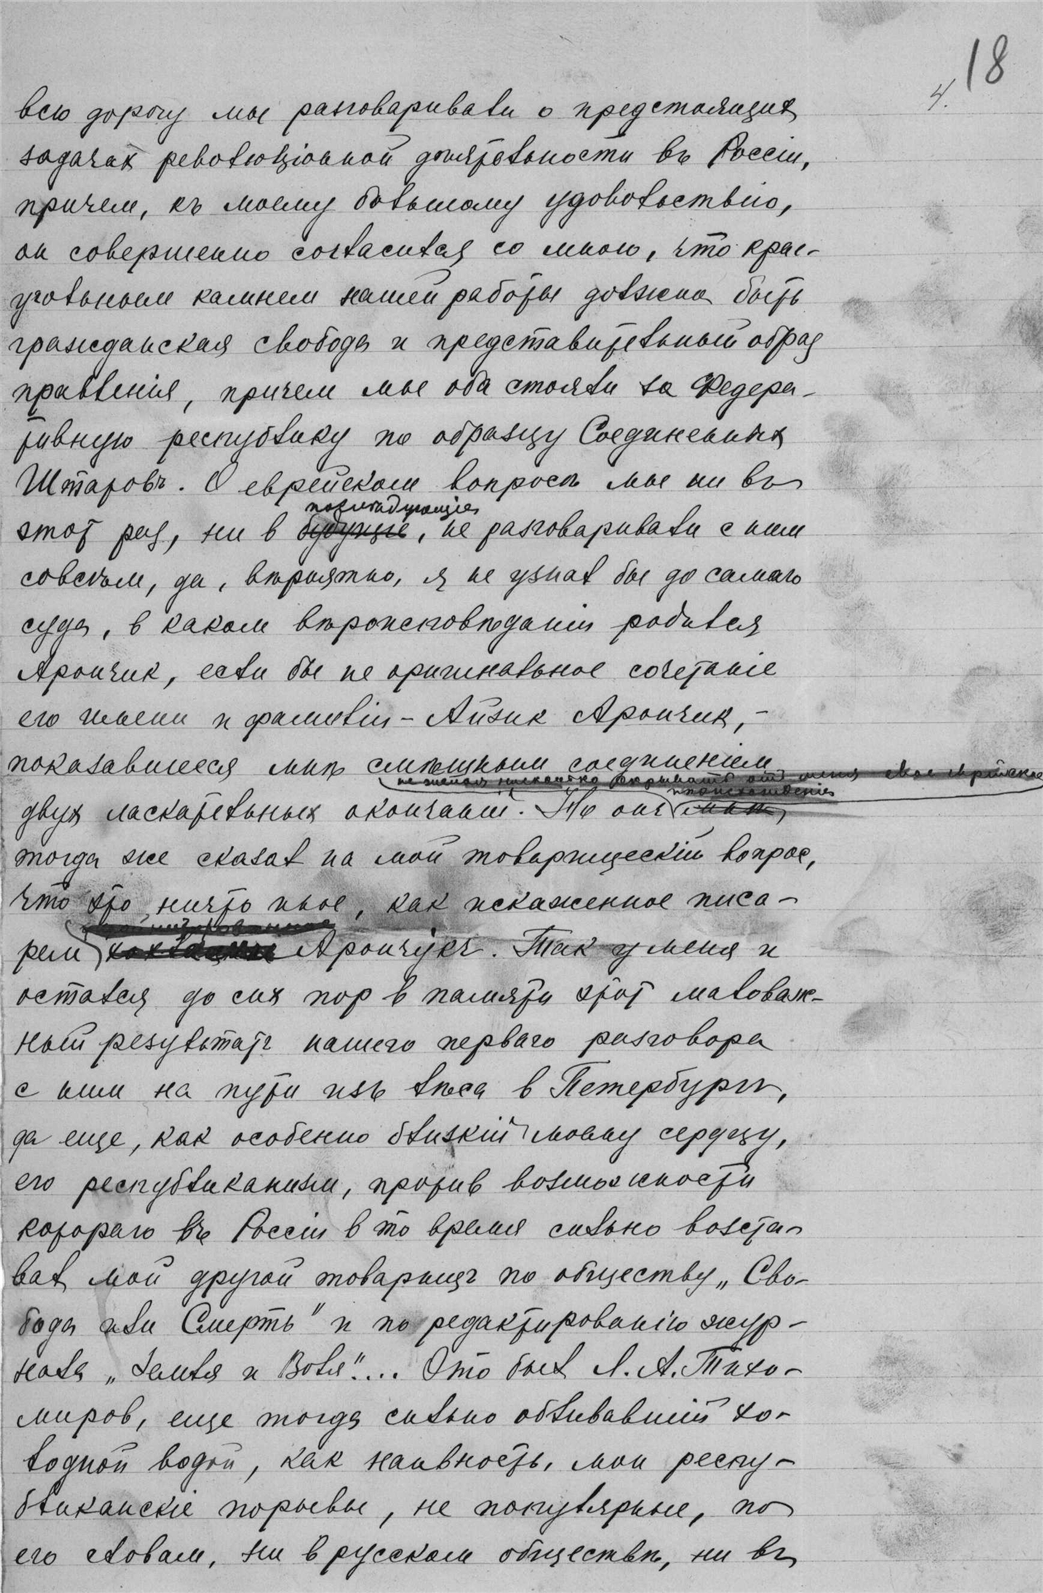 18
4.
всю дорогу мы разговаривали о предстоящих
задачах революціонной дѣятельности въ Россіи,
причем, къ моему большому удовольствію,
он совершенно согласился со мною, что крае-
угольным камнем нашей работы должна быть
гражданская свобода и представительный образ
правленія, причем мы оба стояли за Федера-
тивную республику по образцу Соединенных
Штатовъ. О еврейском вопросѣ мы ни въ
послѣдующіе
этот раз, ни в будущіе, не разговаривали с ним
совсѣм, да, вѣроятно, я не узнал бы до самаго
суда, в каком вѣроисповѣданіи родился
Арончик, если бы не оригинальное сочетаніе
его имени и фамиліи - Айзик Арончик, -
показавшееся мнѣ смѣшным соединеніем
не желая нисколько скрывать отъ меня свое еврейское
происхожденіе
двух ласкательных окончаній. Но онъ мнѣ
тогда же сказал на мой товарищескій вопрос,
что это ничто иное, как искаженное писа-
рем Арончукъ. Так у меня и
остался до сих пор в памяти этот маловаж-
ный результатъ нашего перваго разговора
с ним на пути изъ лѣса в Петербургъ,
да еще, как особенно близкій моему сердцу,
его республиканизм, против возможности
котораго въ Россіи в то время сильно возста-
вал мой другой товарищъ по обществу „Сво-
бода или Смерть" и по редактированію жур-
нала „Земля и Воля".... Это был Л. А. Тихо-
миров, еще тогда сильно обливавшій хо-
лодной водой, как наивность, мои респу-
бликанскіе порывы, не популярные, по
его словам, ни в русском обществѣ, ни въ